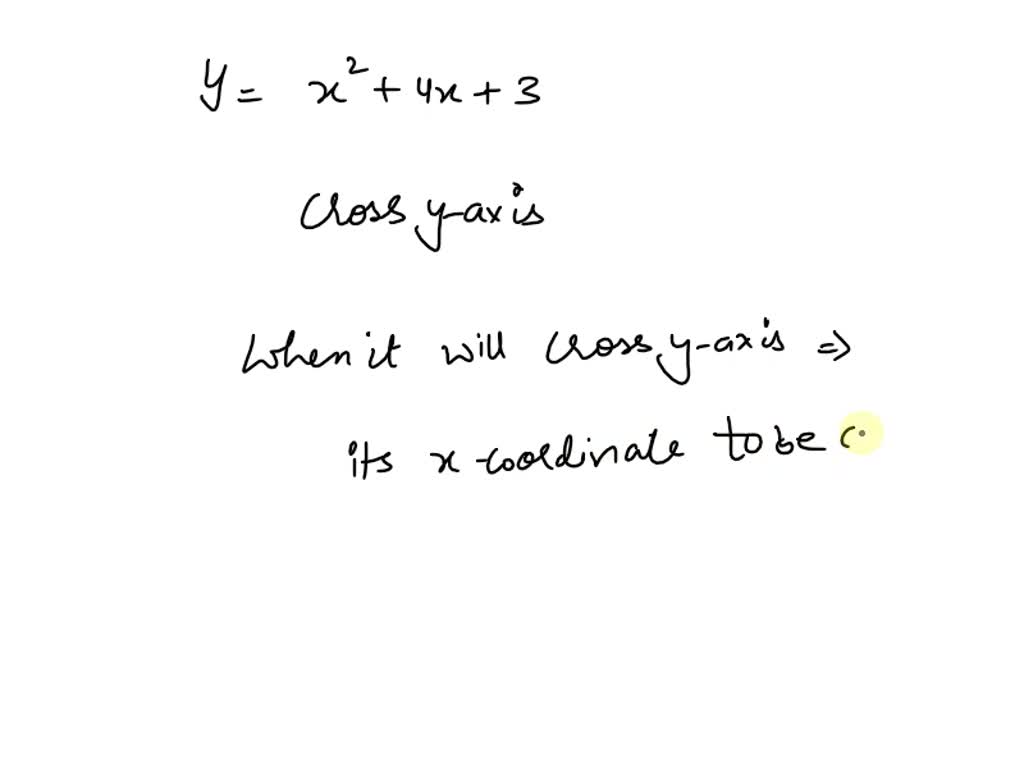 y = x² + 4x + 3
Cross y-axis
When it will cross y-axis ⇒
its x-coordinate to be